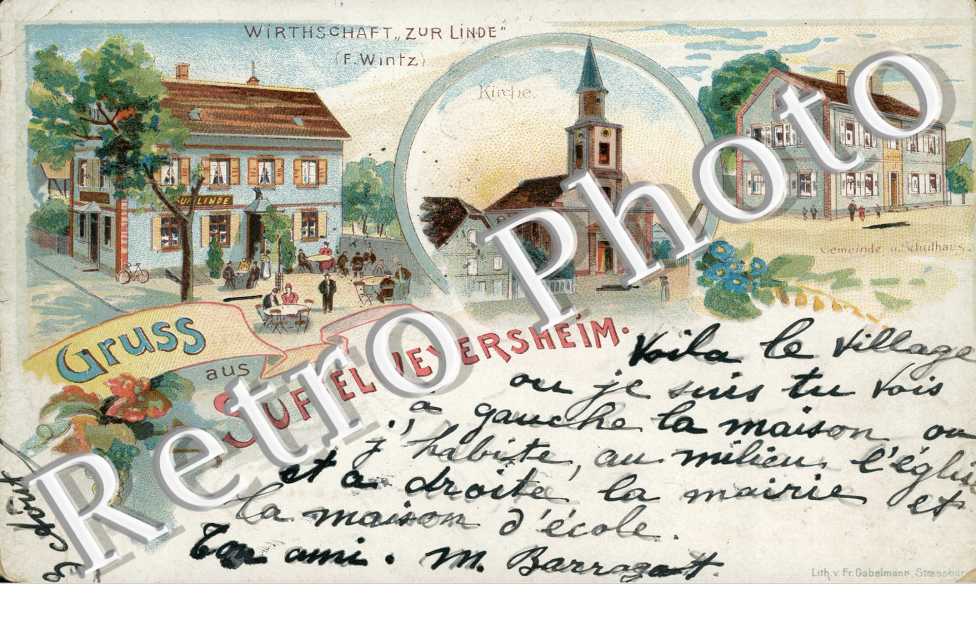 WIRTHSCHAFT „ZUR LINDE"
(F. Wintz)
Kirche.
ZUR LINDE
Gemeinde u. Schulhaus
Gruss
aus
SUFFELWEYERSHEIM.
Voila le village
ou je suis tu vois
a gauche la maison ou
j'habite, au milieu l'église
et a droite la mairie et
la maison d'école.
Ton ami. M.
Lith. v. Fr. Gabelmann, Strassburg
Retro Photo